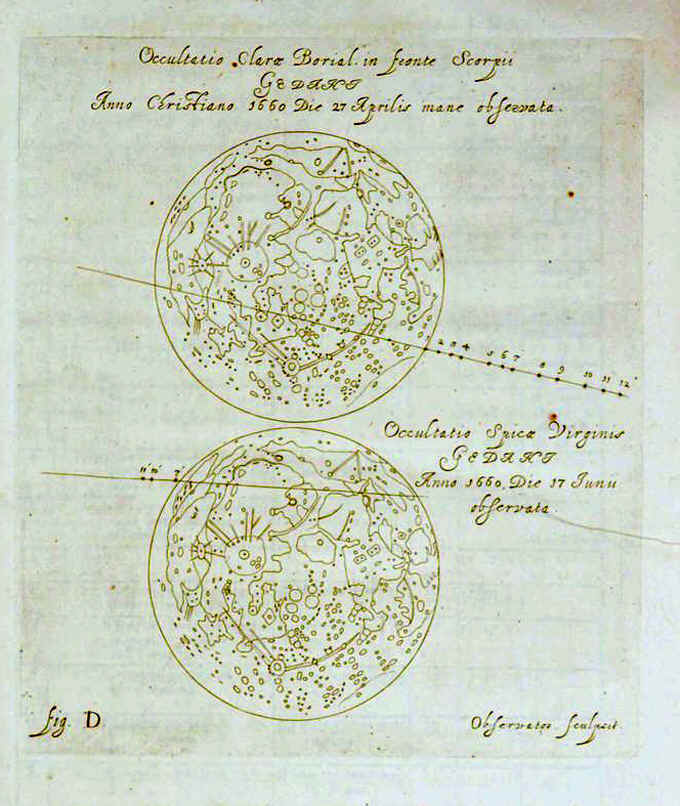 Occultatio Claræ Borial. in fronte Scorpii
GEDANI
Anno Christiano 1660 Die 27 Aprilis mane observata.
1 2 3 4 5 6 7 8 9 10 11 12
Occultatio Spicæ Virginis
GEDANI
Anno 1660. Die 17 Iunii
observata.
fig. D
Observator sculpsit.